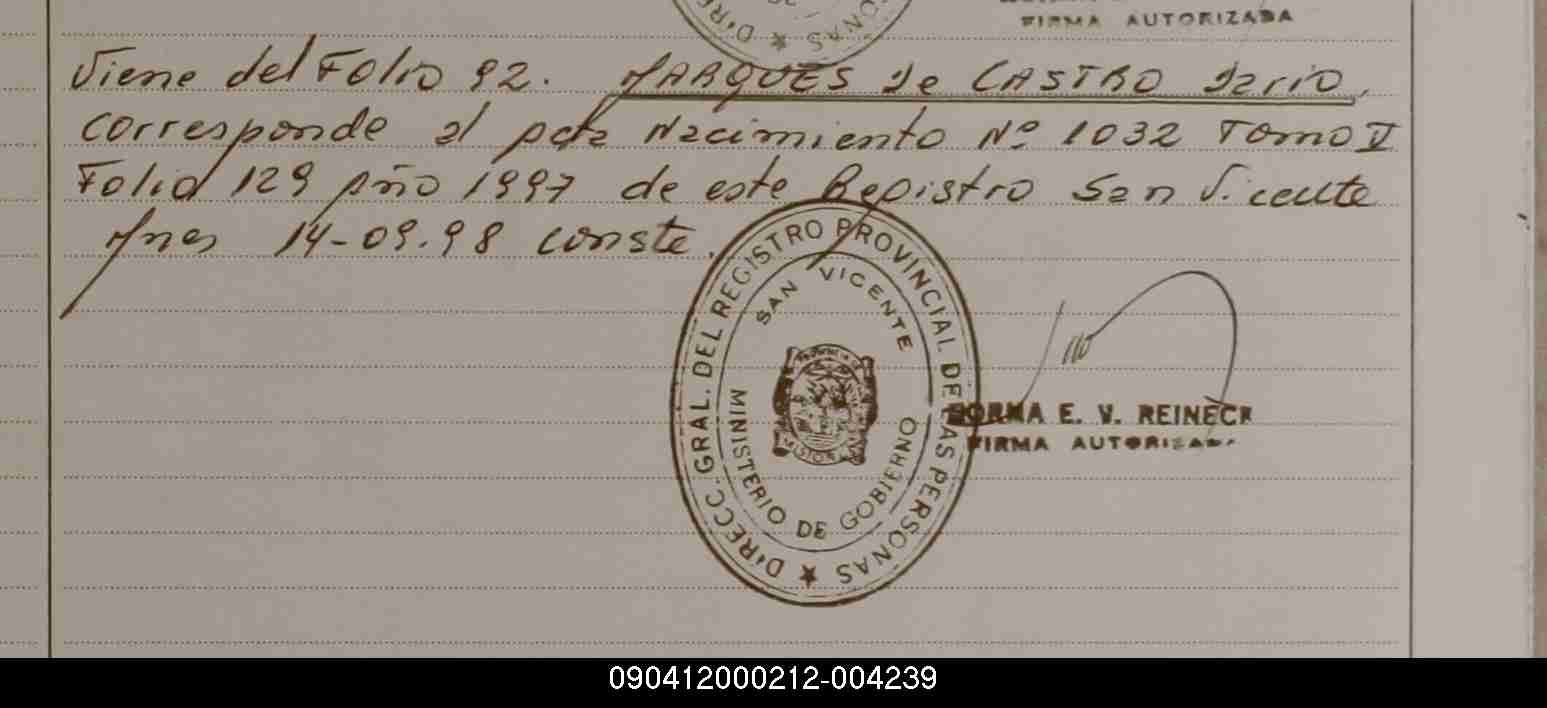 FIRMA AUTORIZADA
Viene del Folio 92. MARQUES de CASTRO Dario,
corresponde al acta Nacimiento Nº 1032 Tomo II
Folio 129 Año 1997 de este Registro San Vicente
Mnes 14-09-98 conste.
DIRECC. GRAL. DEL REGISTRO PROVINCIAL DE LAS PERSONAS
SAN VICENTE
MINISTERIO DE GOBIERNO
NORMA E. V. REINECK
FIRMA AUTORIZADA
090412000212-004239